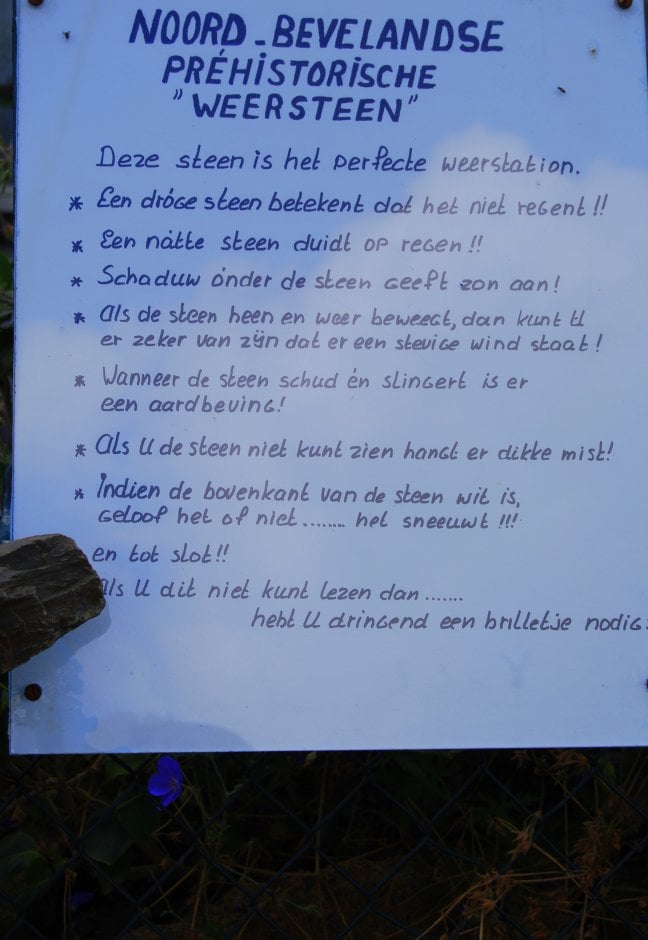 NOORD-BEVELANDSE
PRÉHISTORISCHE
"WEERSTEEN"
Deze steen is het perfecte weerstation.
* Een dróge steen betekent dat het niet regent!!
* Een nàtte steen duidt op regen!!
* Schaduw ónder de steen geeft zon aan!
* Als de steen heen en weer beweegt, dan kunt U
er zeker van zijn dat er een stevige wind staat!
* Wanneer de steen schud én slingert is er
een aardbeving!
* Als U de steen niet kunt zien hangt er dikke mist!
* Indien de bovenkant van de steen wit is,
geloof het of niet........ het sneeuwt!!!
en tot slot!!
als U dit niet kunt lezen dan.......
hebt U dringend een brilletje nodig!